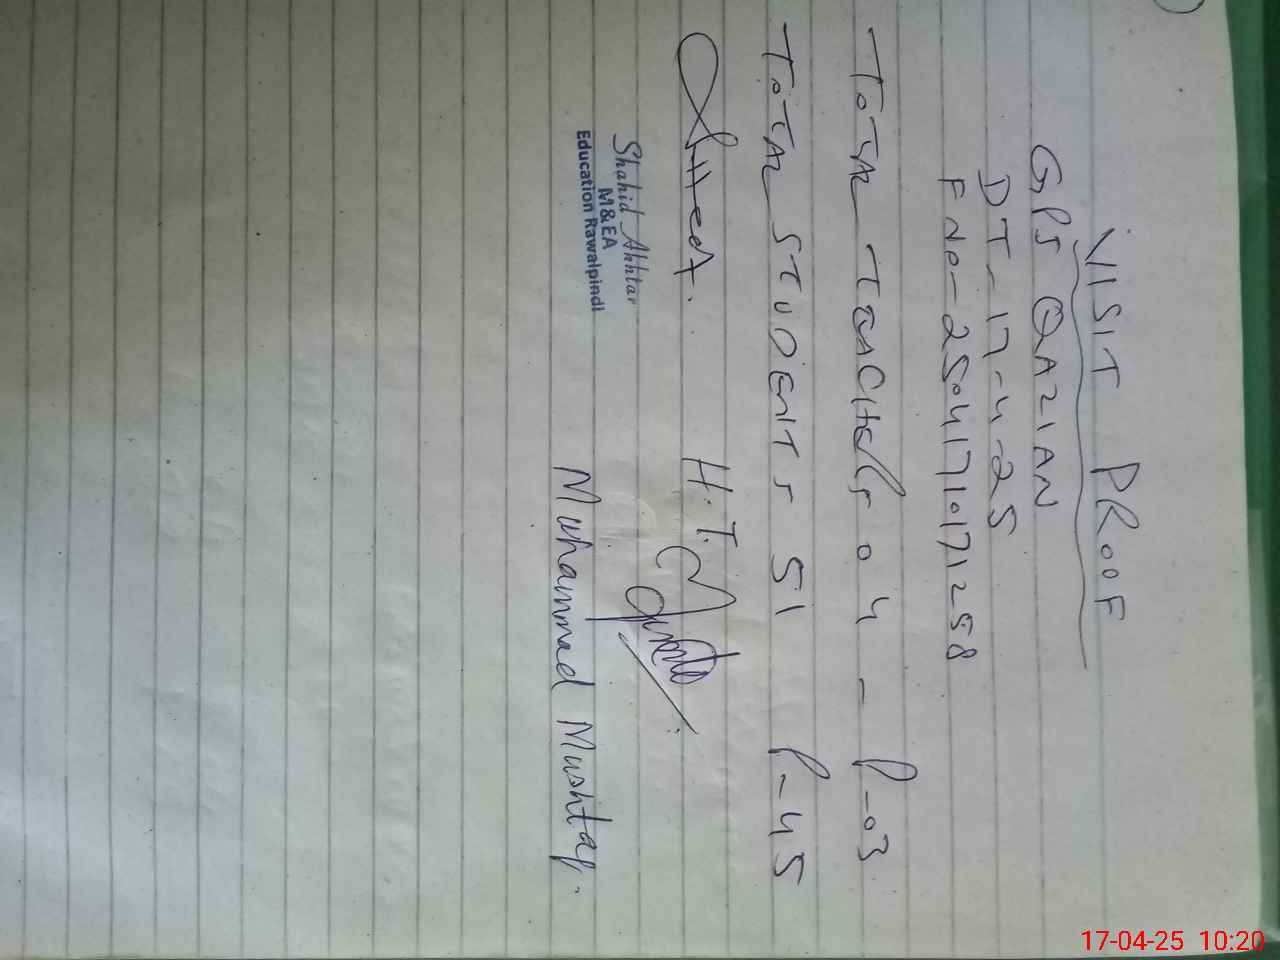 VISIT PROOF
GPS QAZIAN
DT - 17-4-25
F No - 25041710171258
TOTAL TEACHERS 04 - P-03
TOTAL STUDENTS 51 P-45
H.T.
Shahid Akhtar
M&EA
Education Rawalpindi
Muhammad Mushtaq.
17-04-25 10:20